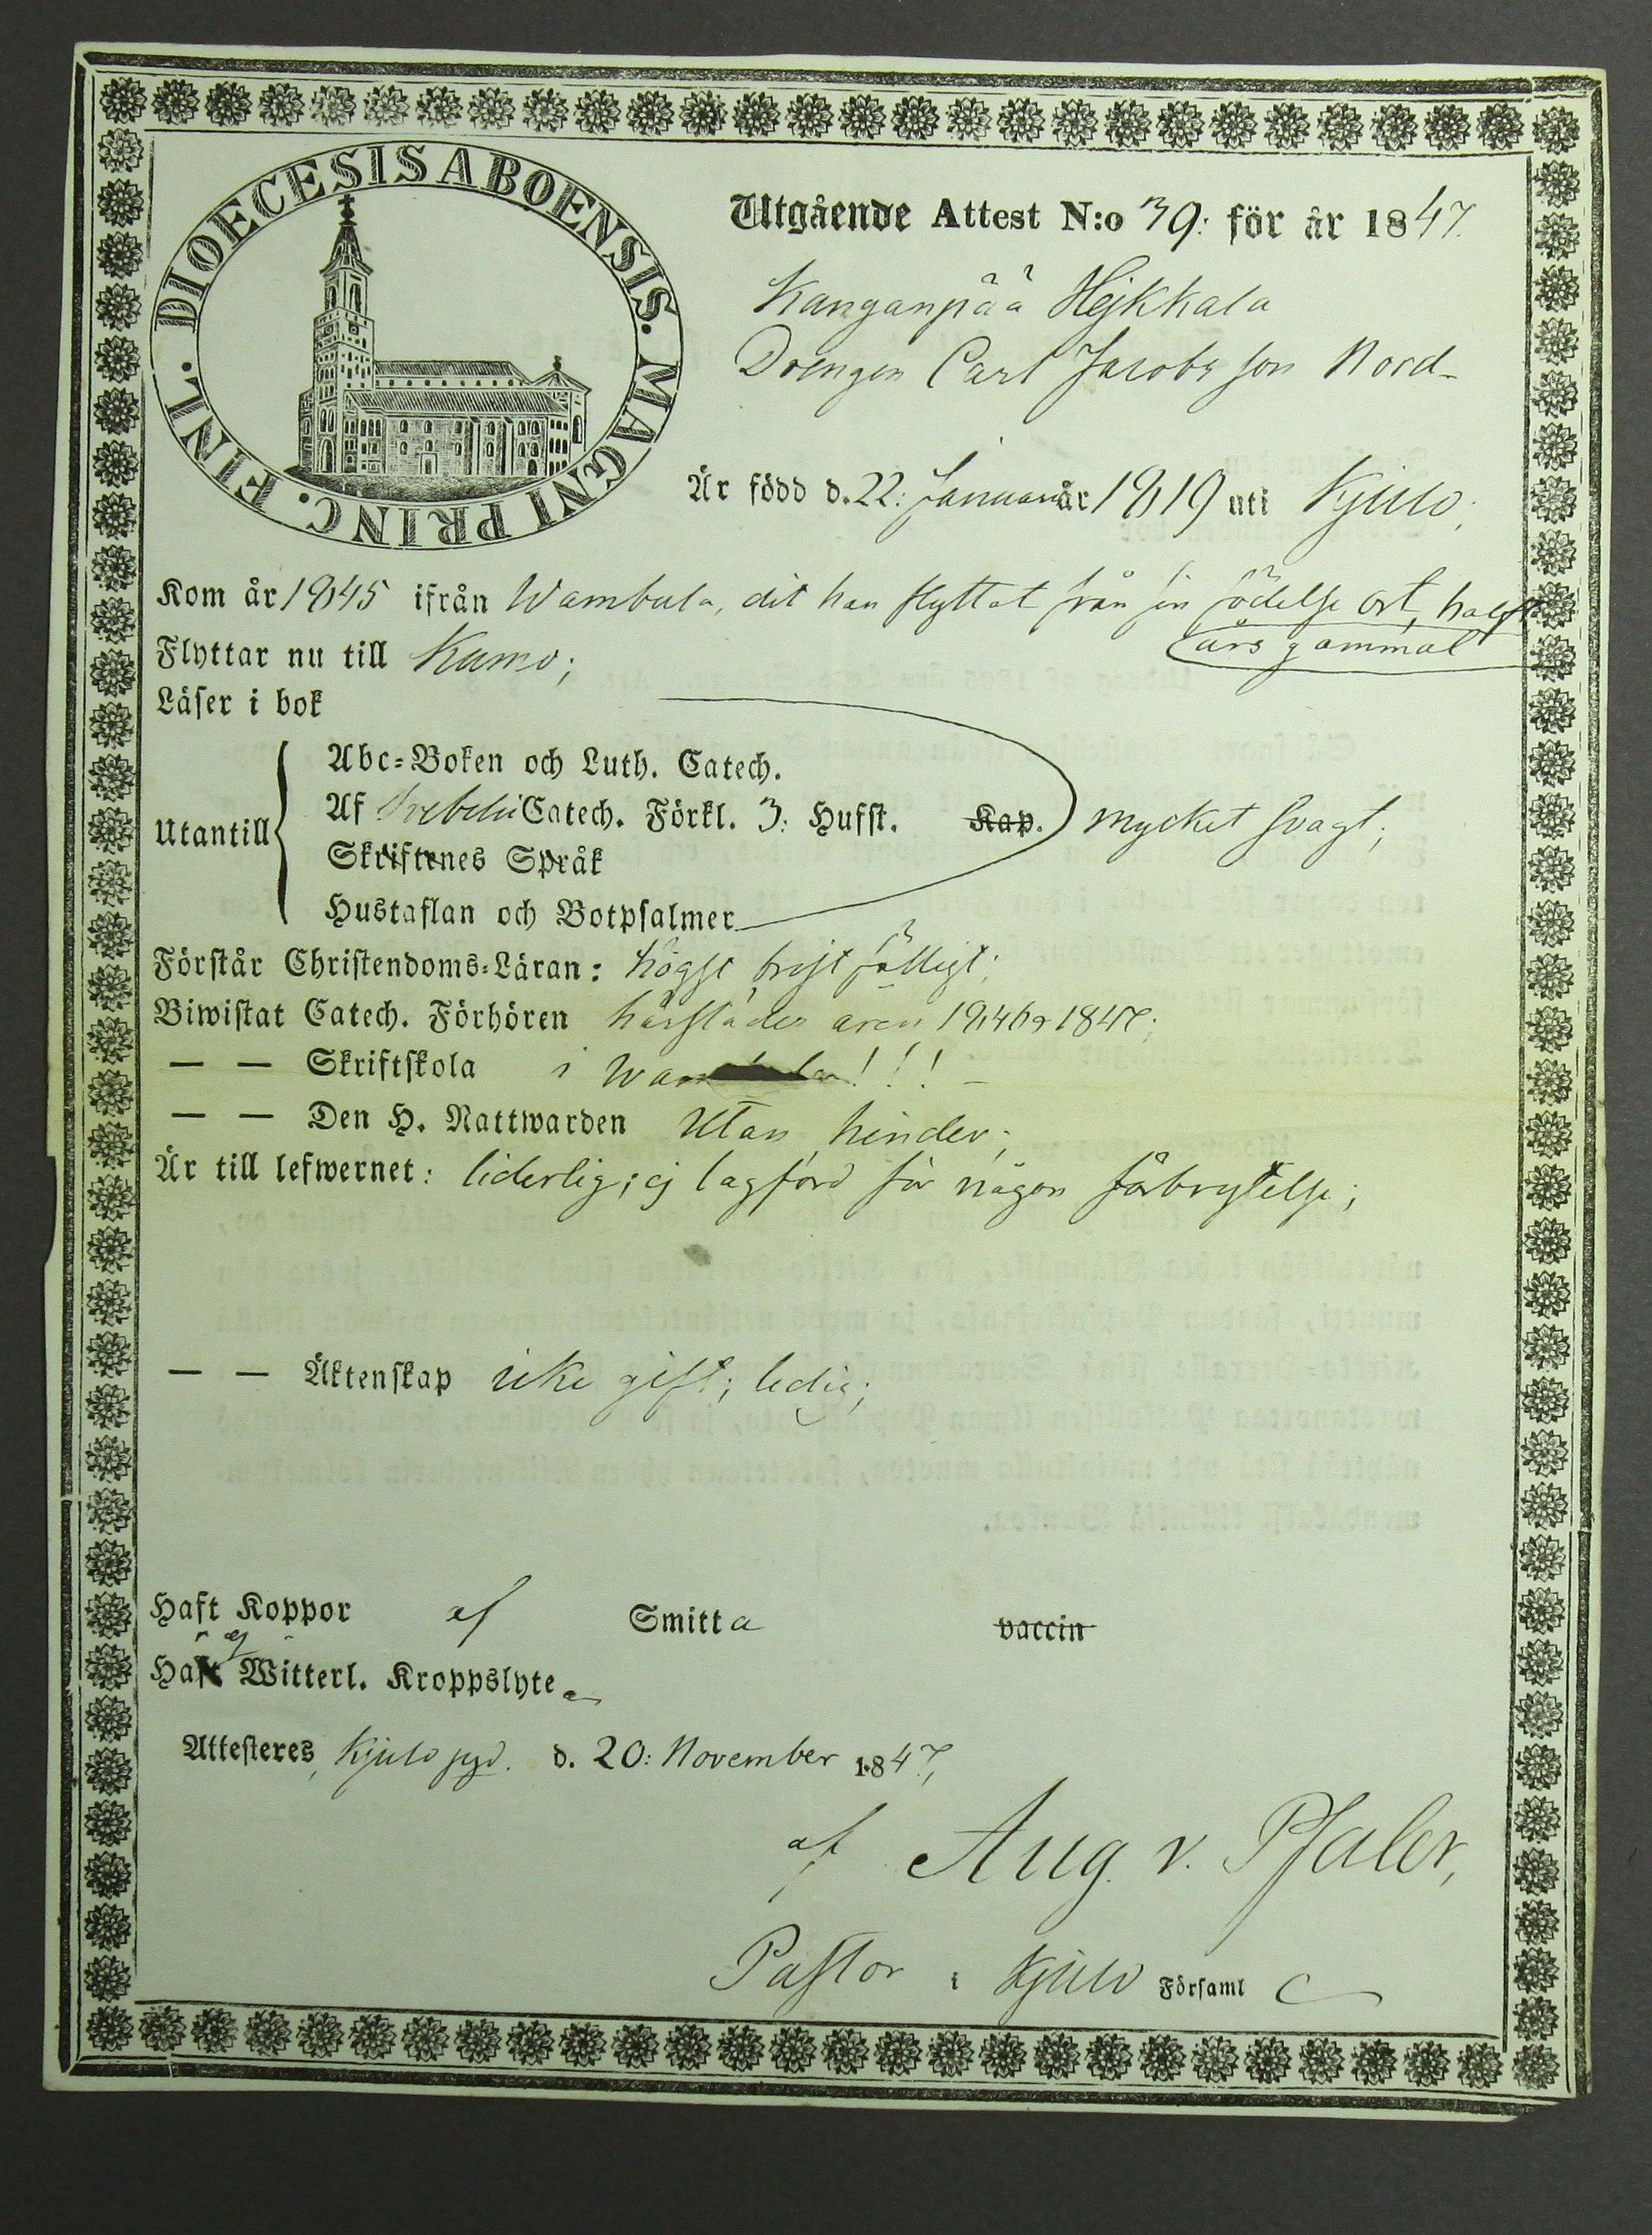 DIOECESIS ABOENSIS. MAGNI PRINC. FINL.
Utgående Attest N:o 39: för år 1847.
Kanganpää Hejkkala
Drengen Carl Jacobsson Nord-
Är född d. 22: Januari år 1819 uti Kjulo;
Kom år 1845 ifrån Wambula, dit han flyttat från sin födelse ort, halft
års gammal
Flyttar nu till Kumo;
Läser i bok
Utantill
Abc-Boken och Luth. Catech.
Af Svebelii Catech. Förkl. 3: Hufst. Kap. mycket svagt;
Skriftenes Språk
Hustaflan och Botpsalmer
Förstår Christendoms-Läran: högst bristfälligt;
Biwistat Catech. Förhören härstädes åren 1846 o 1847;
— — Skriftskola i !!! —
— — Den H. Nattwarden utan hinder;
Är till lefwernet: liderlig; ej lagförd för någon förbrytelse;
— — Äktenskap icke gift; ledig;
Haft Koppor af Smitta vaccin
ej
Haft Witterl. Kroppslyte
Attesteres, Kjulo pgd. d. 20: November 1847,
af Aug. v. Pfaler,
Pastor i Kjulo Församl